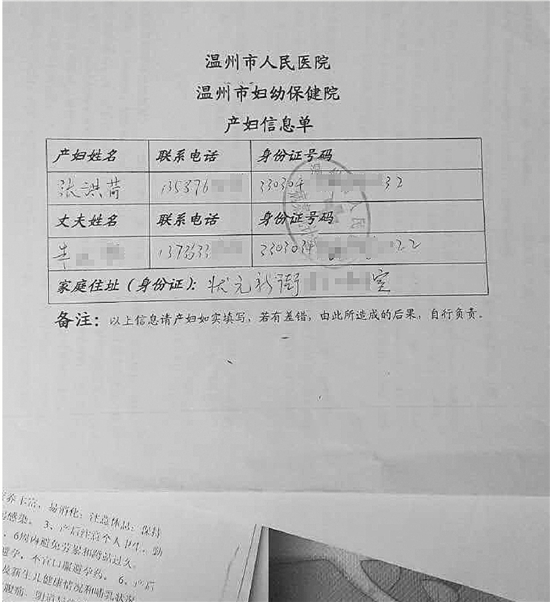 温州市人民医院
温州市妇幼保健院
产妇信息单
产妇姓名 联系电话 身份证号码
张洪苗 135876 330304 32
丈夫姓名 联系电话 身份证号码
137333 330304 22
家庭住址（身份证）：状元新街 室
备注：以上信息请产妇如实填写，若有差错，由此所造成的后果，自行负责。
养丰富，易消化；注意休息；保持
感染。 3、产后注意个人卫生，勤
6周内避免劳累和蹲站过久。
避孕，不宜口服避孕药。 6、产后
及新生儿健康情况和哺乳状况